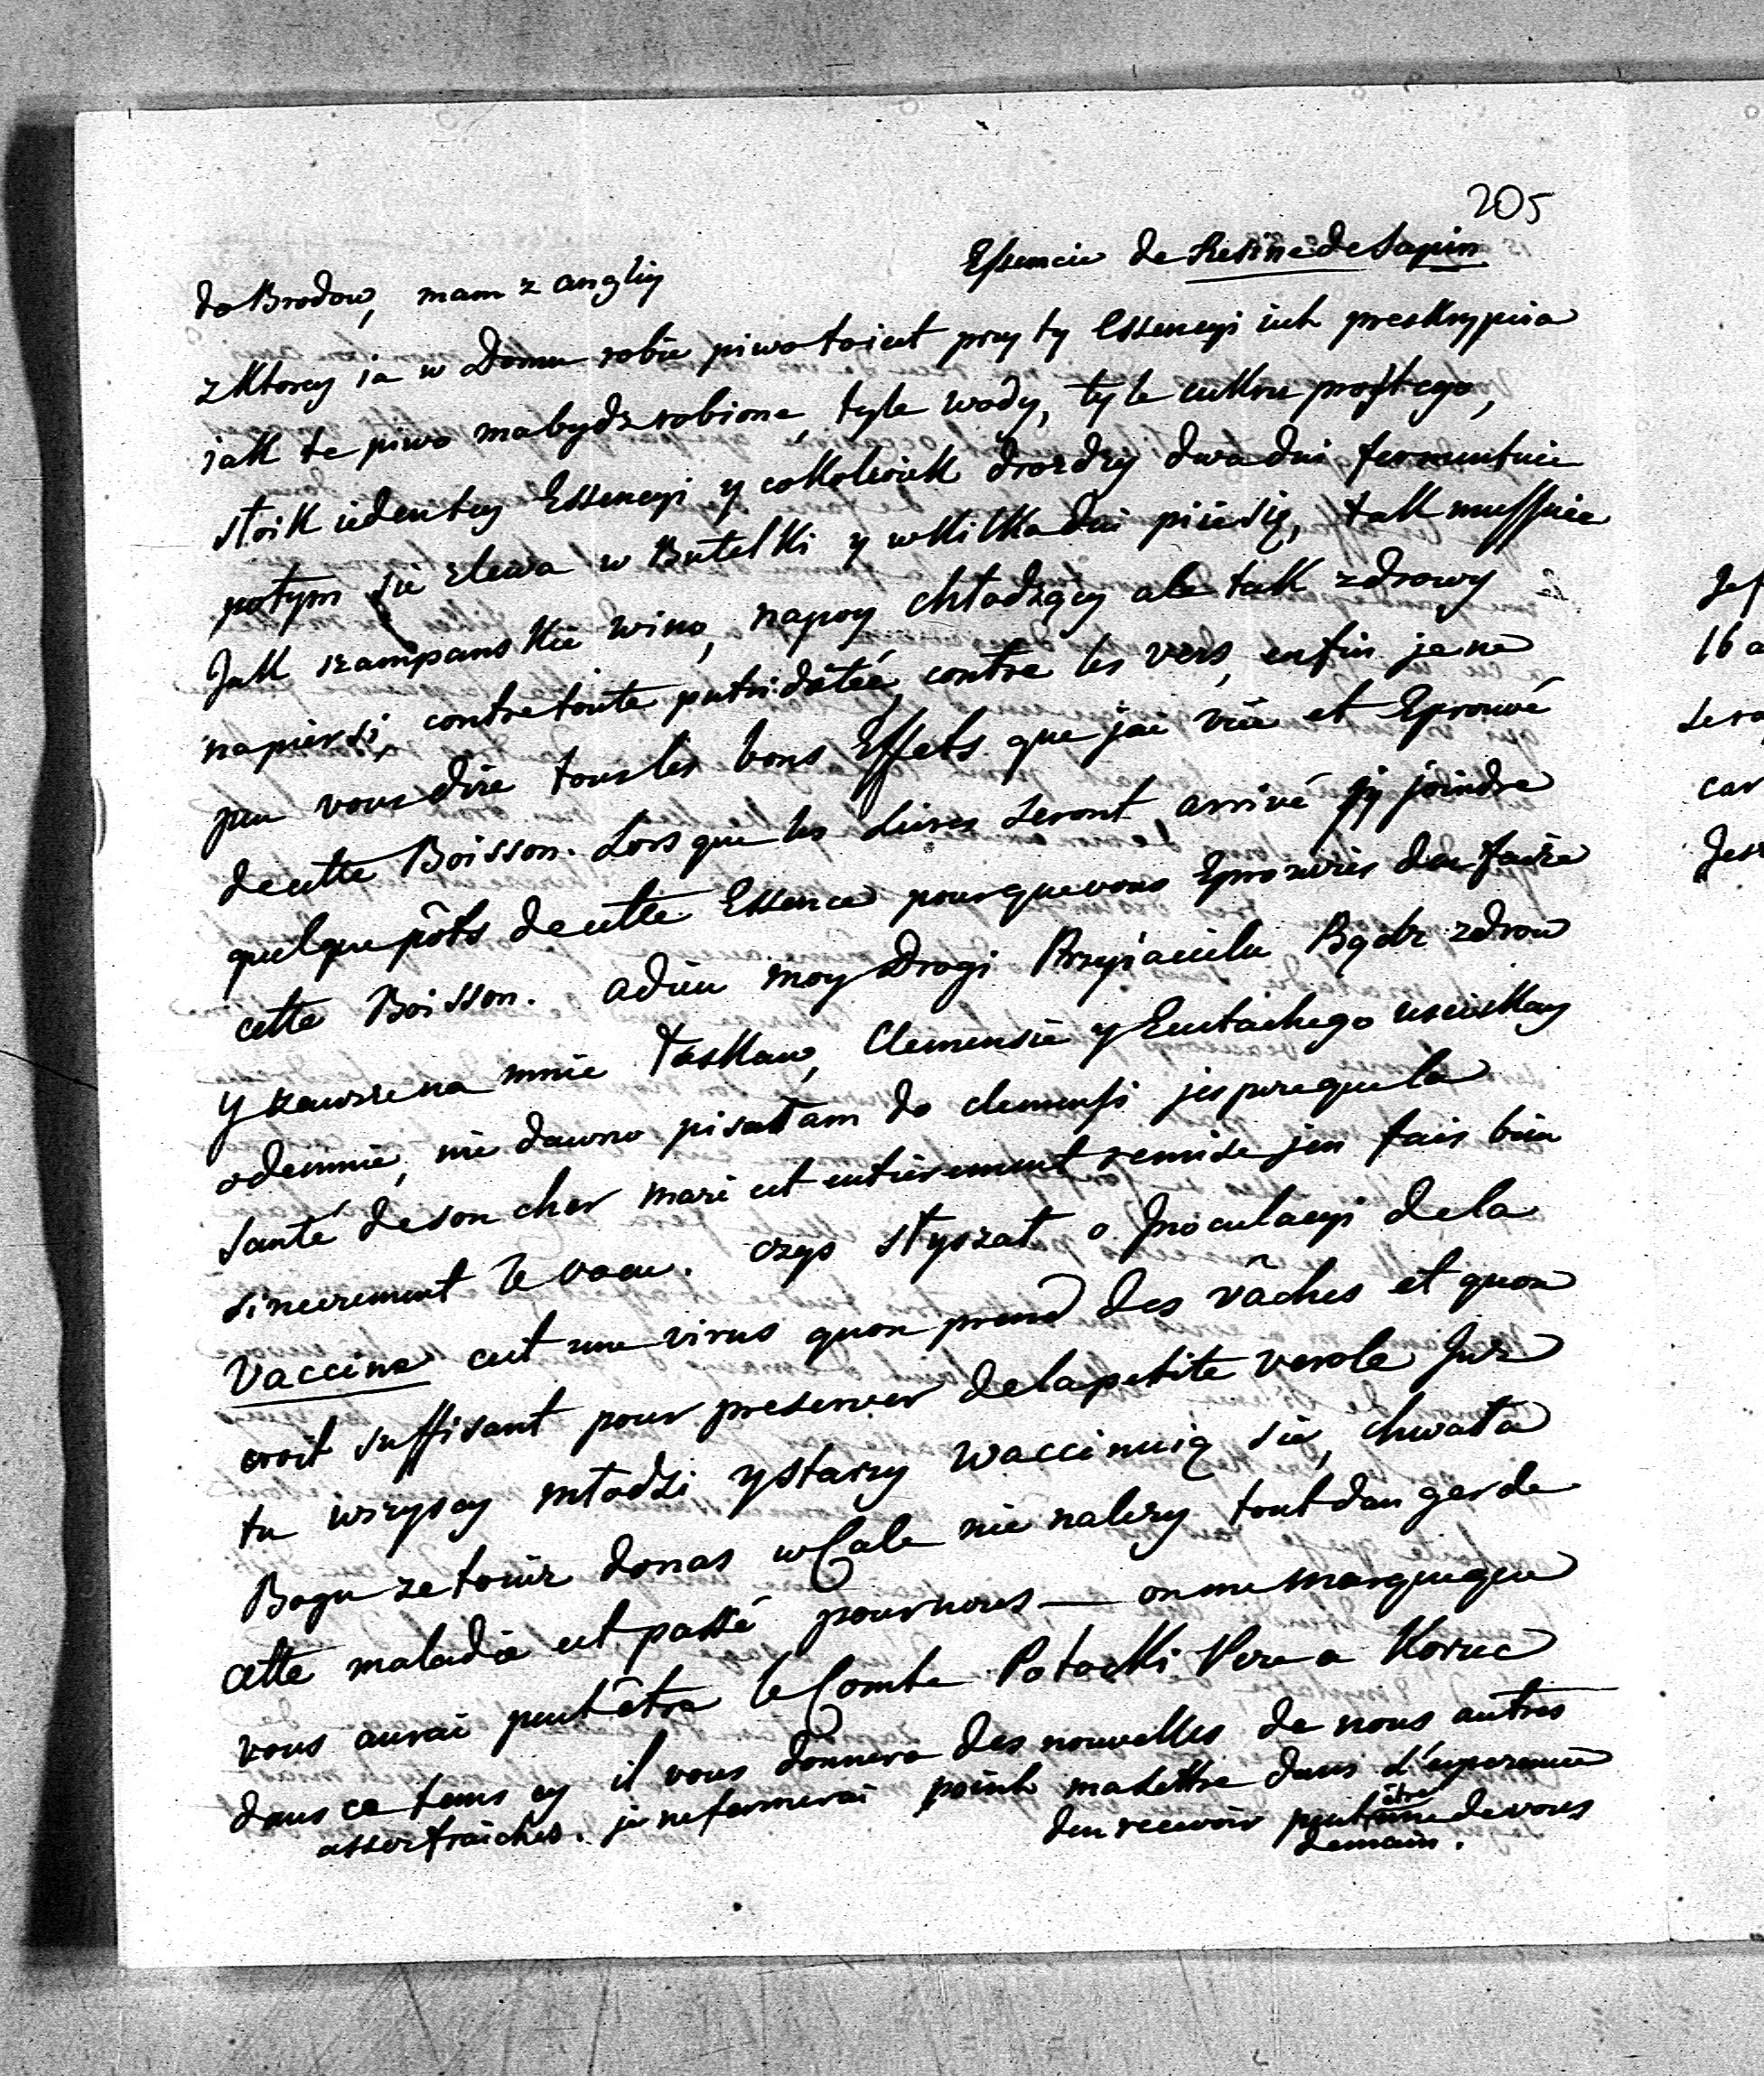 205
do Brodow, mam z angliy Essencie de Resine de Sapin
z Ktorey ia w Domu robie piwo to iest przy ty Essencyi iest preskrypcia
iak te piwo ma bydz robione, tyle wody, tyle cukru prostego,
stoik ieden tey Essencyi y cokolwiek drozdzy dwa dni fermentuie
potym sie zlewa w Butelki y w kilka dni piie się, tak mussuie
Jak szampanskie wino, napoy chłodzący ale tak zdrowy
na piersi, contre toute putridatée, contre les vers, enfin je ne
peu vous dire tous les bons Effets que jai vüe et Eprouvé
de cette Boisson. Lors que les Livres seront arrivé jy joindre
quelque pôts de cette Essence pour que vous Eprouvies den faire
cette Boisson. adieu moy Drogi Przyiacielu Bądz zdrow
y zawsze na mnie łaskaw, Clemensie y Eustachego usciskay
odemnie, nie dawno pisałam do clemensi jespere que la
santé de son cher mari est entierement remise jen fais bien
sincerement le voeu. czys słyszał o Jnoculacyi de la
Vaccine cest une virus quon prend des vâches et quon
croit suffisant pour preserver de la petite verole Juz
tu wszyscy młodzi y starzy waccinuią sie, chwała
Bogu ze to iuz do nas w Cale nie nalezy tout dangerde
cette maladie est passé pour nous — on me marque que
vous aurai peutêtre le Comte Potocki Vere a Korzec
dans ce tems cy il vous donnera des nouvelles de nous autres
assez fraiches. je ne fermerai point ma lettre dans l'esperance
den recevoir peut être une de vous
demain.
Jes
16 a
sera
car
Jes